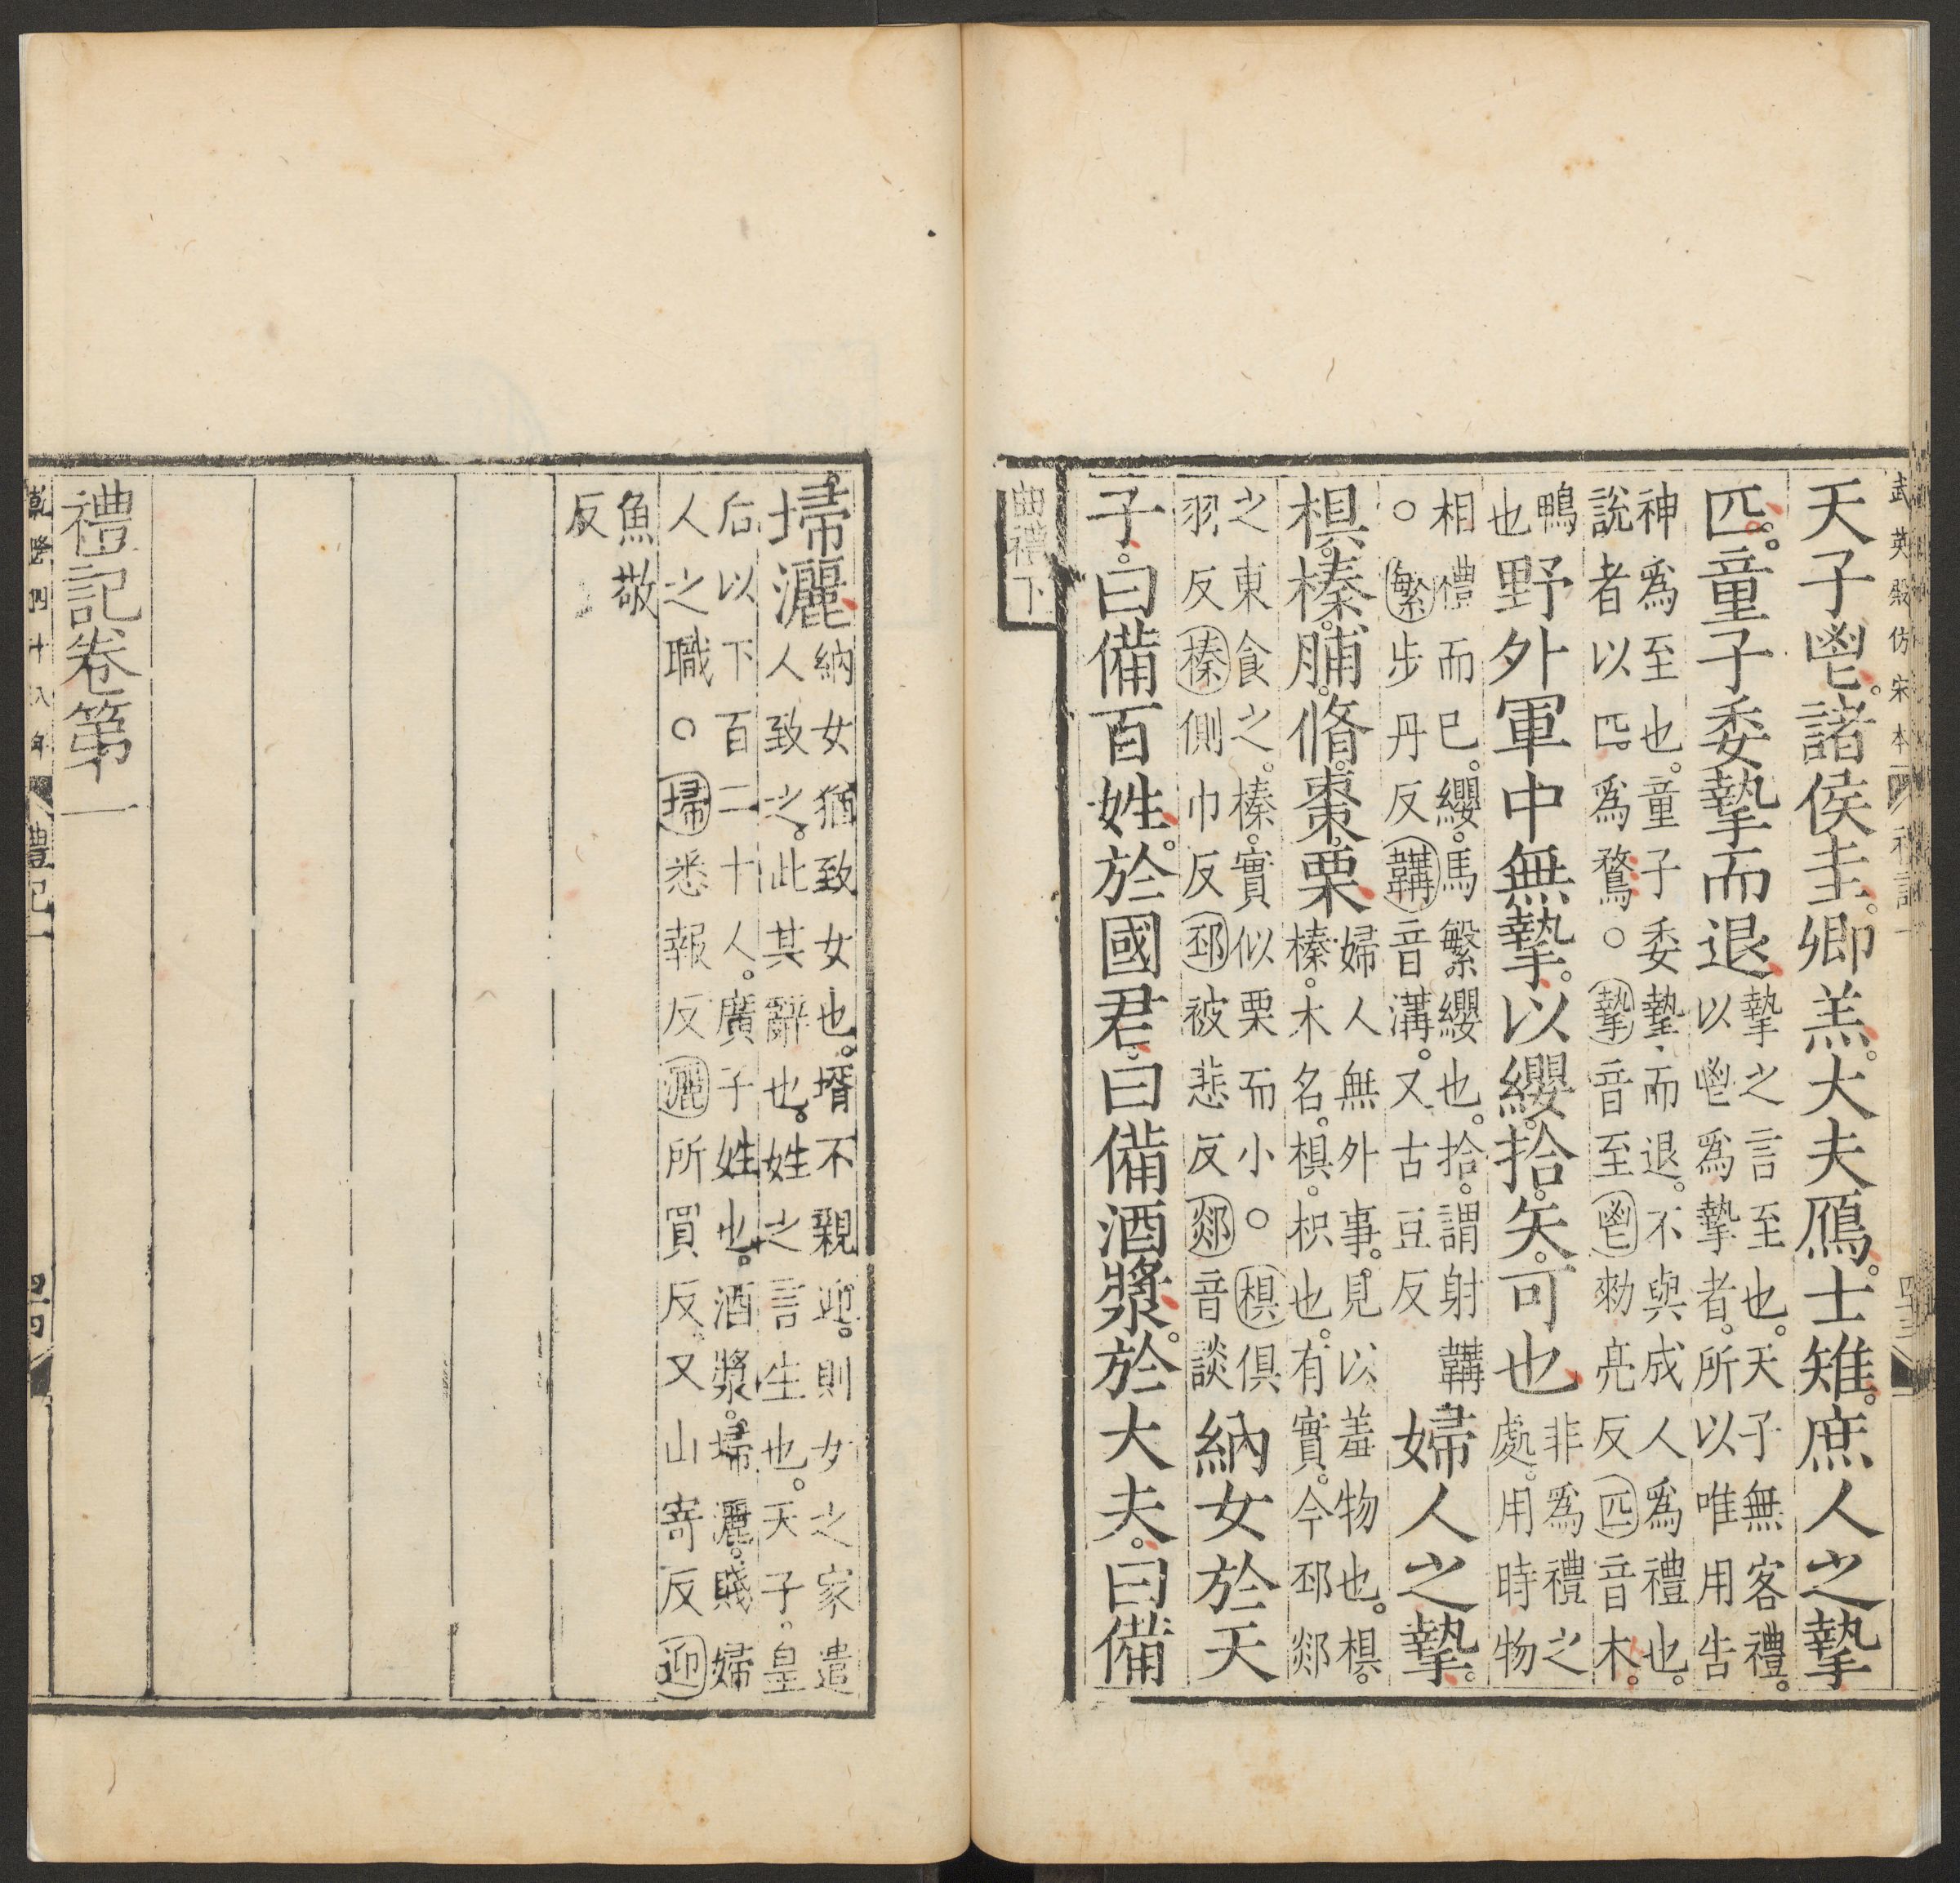 武英殿仿宋本 禮記一 四三
天子鬯。諸侯圭。卿羔。大夫鴈。士雉。庶人之摯
匹。童子委摯而退摯之言至也。天子無客禮。以鬯爲摯者。所以唯用告
神爲至也。童子委摯。而退。不與成人爲禮也。說者以匹。爲鶩。○摯音至鬯勑亮反匹音木。
鴨也野外軍中無摯。以纓。拾。矢。可也非爲禮之處。用時物
相禮而已。纓。馬繁纓也。拾。謂射韝○繁步丹反韝音溝。又古豆反婦人之摯。
椇。榛。脯。脩。棗。栗婦人無外事。見以羞物也。椇。榛。木名。椇。枳也。有實。今邳郯
之東食之。榛。實似栗而小。○椇俱羽反榛側巾反邳被悲反郯音談納女於天
子。曰備百姓。於國君。曰備酒漿。於大夫。曰備
曲禮下
掃灑納女猶致女也。壻不親迎。則女之家遣人致之。此其辭也。姓之言生也。天子。皇
后以下百二十人。廣子姓也。酒漿。掃灑。賤婦人之職。○掃悉報反灑所買反。又山寄反迎
魚敬反
禮記卷第一
乾隆四十八年 禮記一 四四